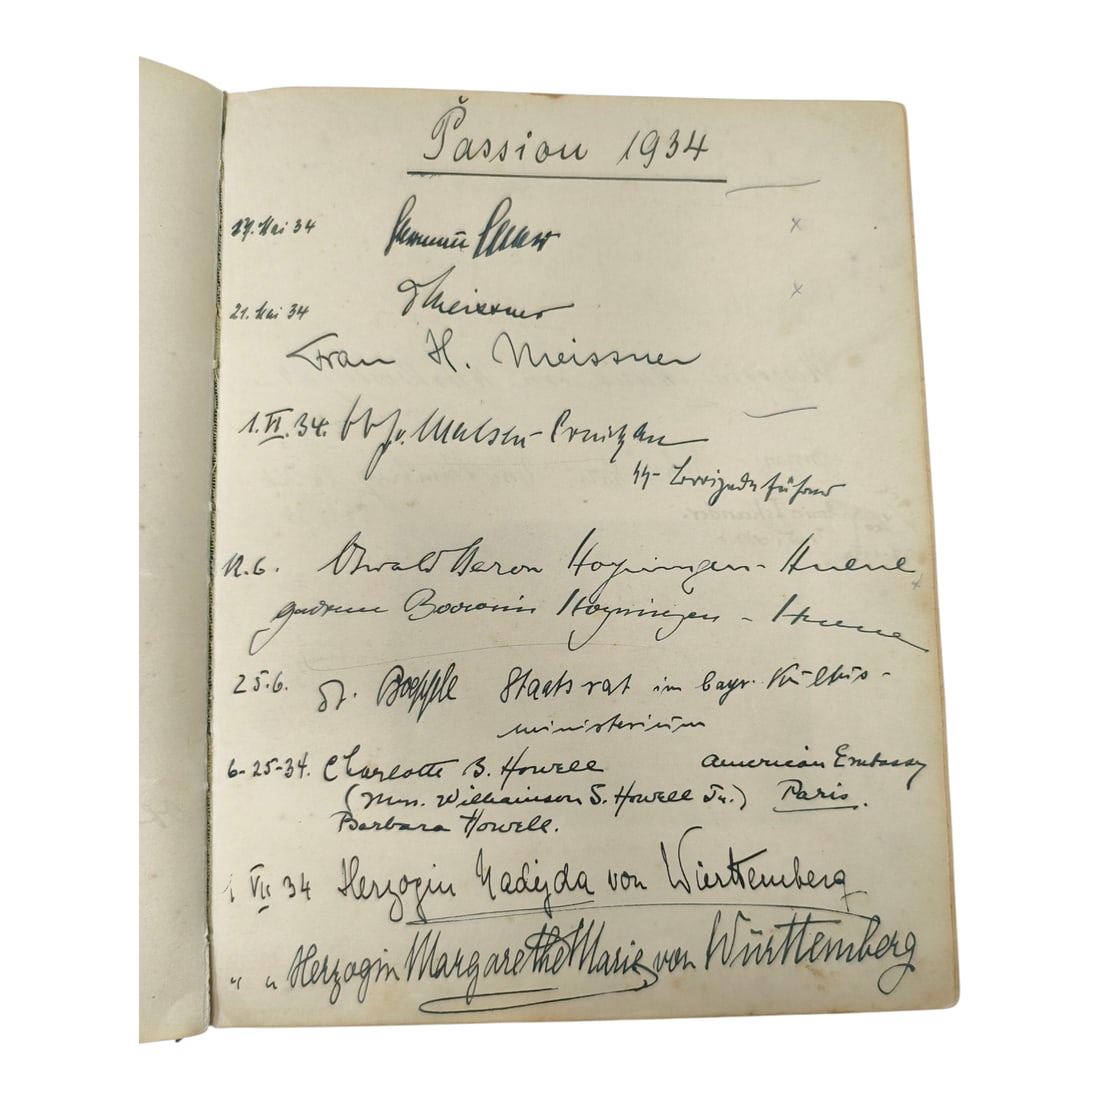 Passion 1934
27. Mai 34 Hermann Esser
21. Mai 34 Meissner
Frau H. Meissner
1. VI. 34. v. Malsen-Ponickau
SS-Brigadeführer
12.6. Oswald Baron Hoyningen-Huene
Baronin Hoyningen-Huene
25.6. Dr. Boepple Staatsrat im bayr. Kultus-
ministerium
6-25-34. Charlotte B. Howell American Embassy
(Mrs. Williamson S. Howell Jr.) Paris.
Barbara Howell.
1 VII 34 Herzogin Nadejda von Württemberg
" " Herzogin Margarethe Marie von Württemberg